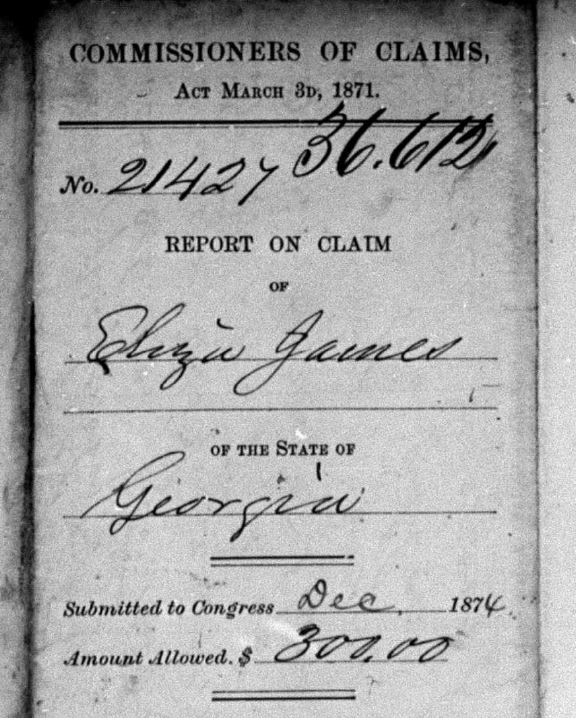 COMMISSIONERS OF CLAIMS,
ACT MARCH 3D, 1871.
36.612
No. 21427
REPORT ON CLAIM
OF
Eliza James
OF THE STATE OF
Georgia
Submitted to Congress Dec. 1874.
Amount Allowed. $ 300.00